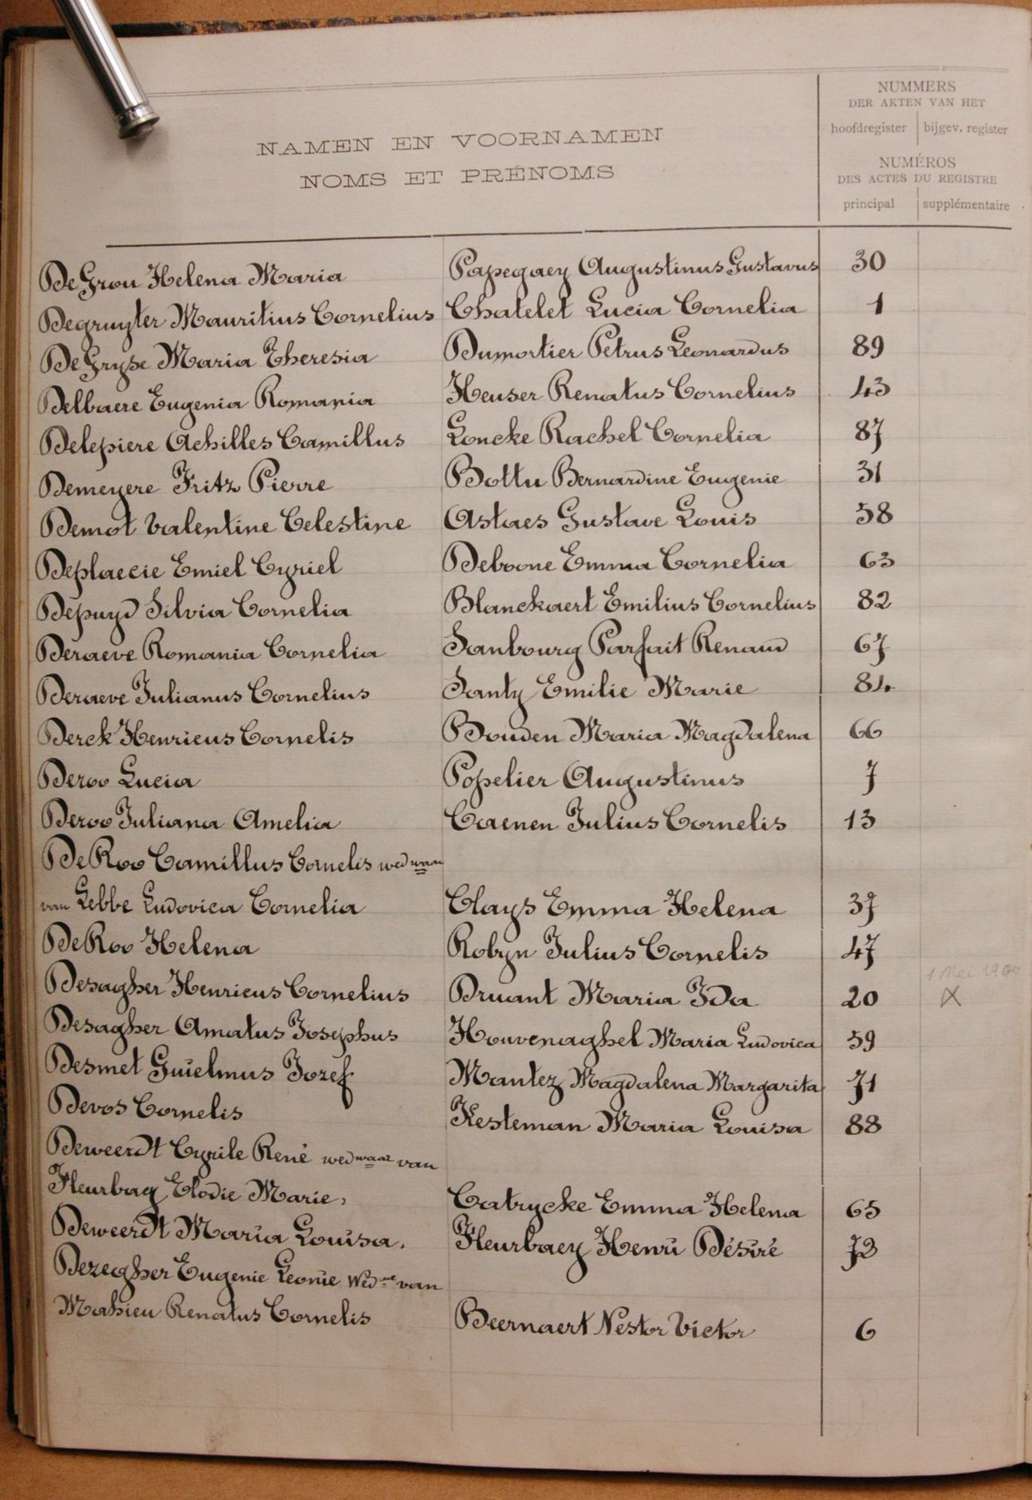 NUMMERS
DER AKTEN VAN HET
hoofdregister bijgev. register
NAMEN EN VOORNAMEN
NOMS ET PRÉNOMS
NUMÉROS
DES ACTES DU REGISTRE
principal supplémentaire
De Grou Helena Maria Papegaey Augustinus Gustavus 30
Degruyter Mauritius Cornelius Chatelet Lucia Cornelia 1
De Gryse Maria Theresia Dumortier Petrus Leonardus 89
Delbaere Eugenia Romania Heuser Renatus Cornelius 43
Delepiere Achilles Camillus Loncke Rachel Cornelia 87
Demeyere Fritz Pierre Bottu Bernardine Eugenie 31
Demot Valentine Celestine Astaes Gustave Louis 58
Deplaecie Emiel Cyriel Deboone Emma Cornelia 63
Depuyd Silvia Cornelia Blanckaert Emilius Cornelius 82
Deraeve Romania Cornelia Sanbourg Parfait Renaud 67
Deraeve Julianus Cornelius Santy Emilie Marie 84
Derck Henricus Cornelis Bouden Maria Magdalena 66
Deroo Lucia Popelier Augustinus 7
Deroo Juliana Amelia Caenen Julius Cornelis 13
De Roo Camillus Cornelis weduwaar
van Lebbe Ludovica Cornelia Clays Emma Helena 37
De Roo Helena Robyn Julius Cornelis 47
Desagher Henricus Cornelius Druant Maria Ida 20 X
Desagher Amatus Josephus Houvenaghel Maria Ludovica 59
Desmet Guielmus Jozef Mantez Magdalena Margarita 71
Devos Cornelis Kesteman Maria Louisa 88
Deweerdt Cyrile René wedwaar van
Fleurbay Elodie Marie, Catrycke Emma Helena 65
Deweerdt Maria Louisa. Fleurbaey Henri Désiré 73
Dezegher Eugenie Leonie Wedwe van
Mahieu Renatus Cornelis Beernaert Nestor Victor 6